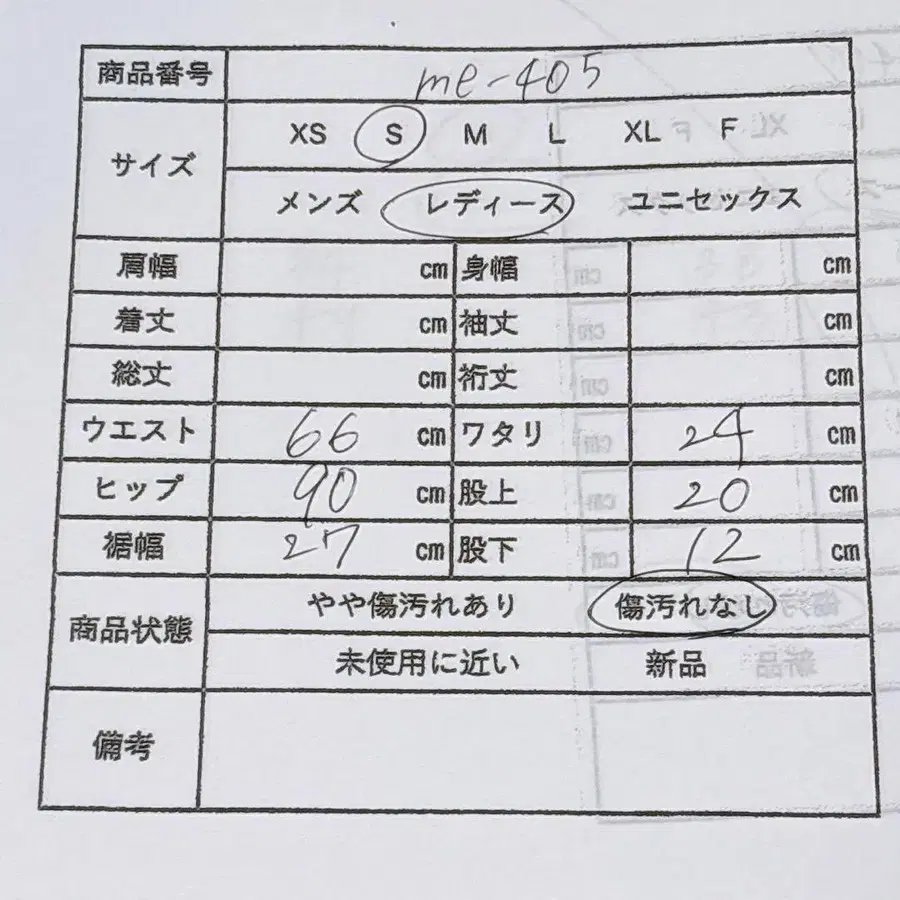 商品番号 me-405
サイズ XS S M L XL F
メンズ レディース ユニセックス
肩幅 cm 身幅 cm
着丈 cm 袖丈 cm
総丈 cm 裄丈 cm
ウエスト 66 cm ワタリ 24 cm
ヒップ 90 cm 股上 20 cm
裾幅 27 cm 股下 12 cm
商品状態 やや傷汚れあり 傷汚れなし
未使用に近い 新品
備考